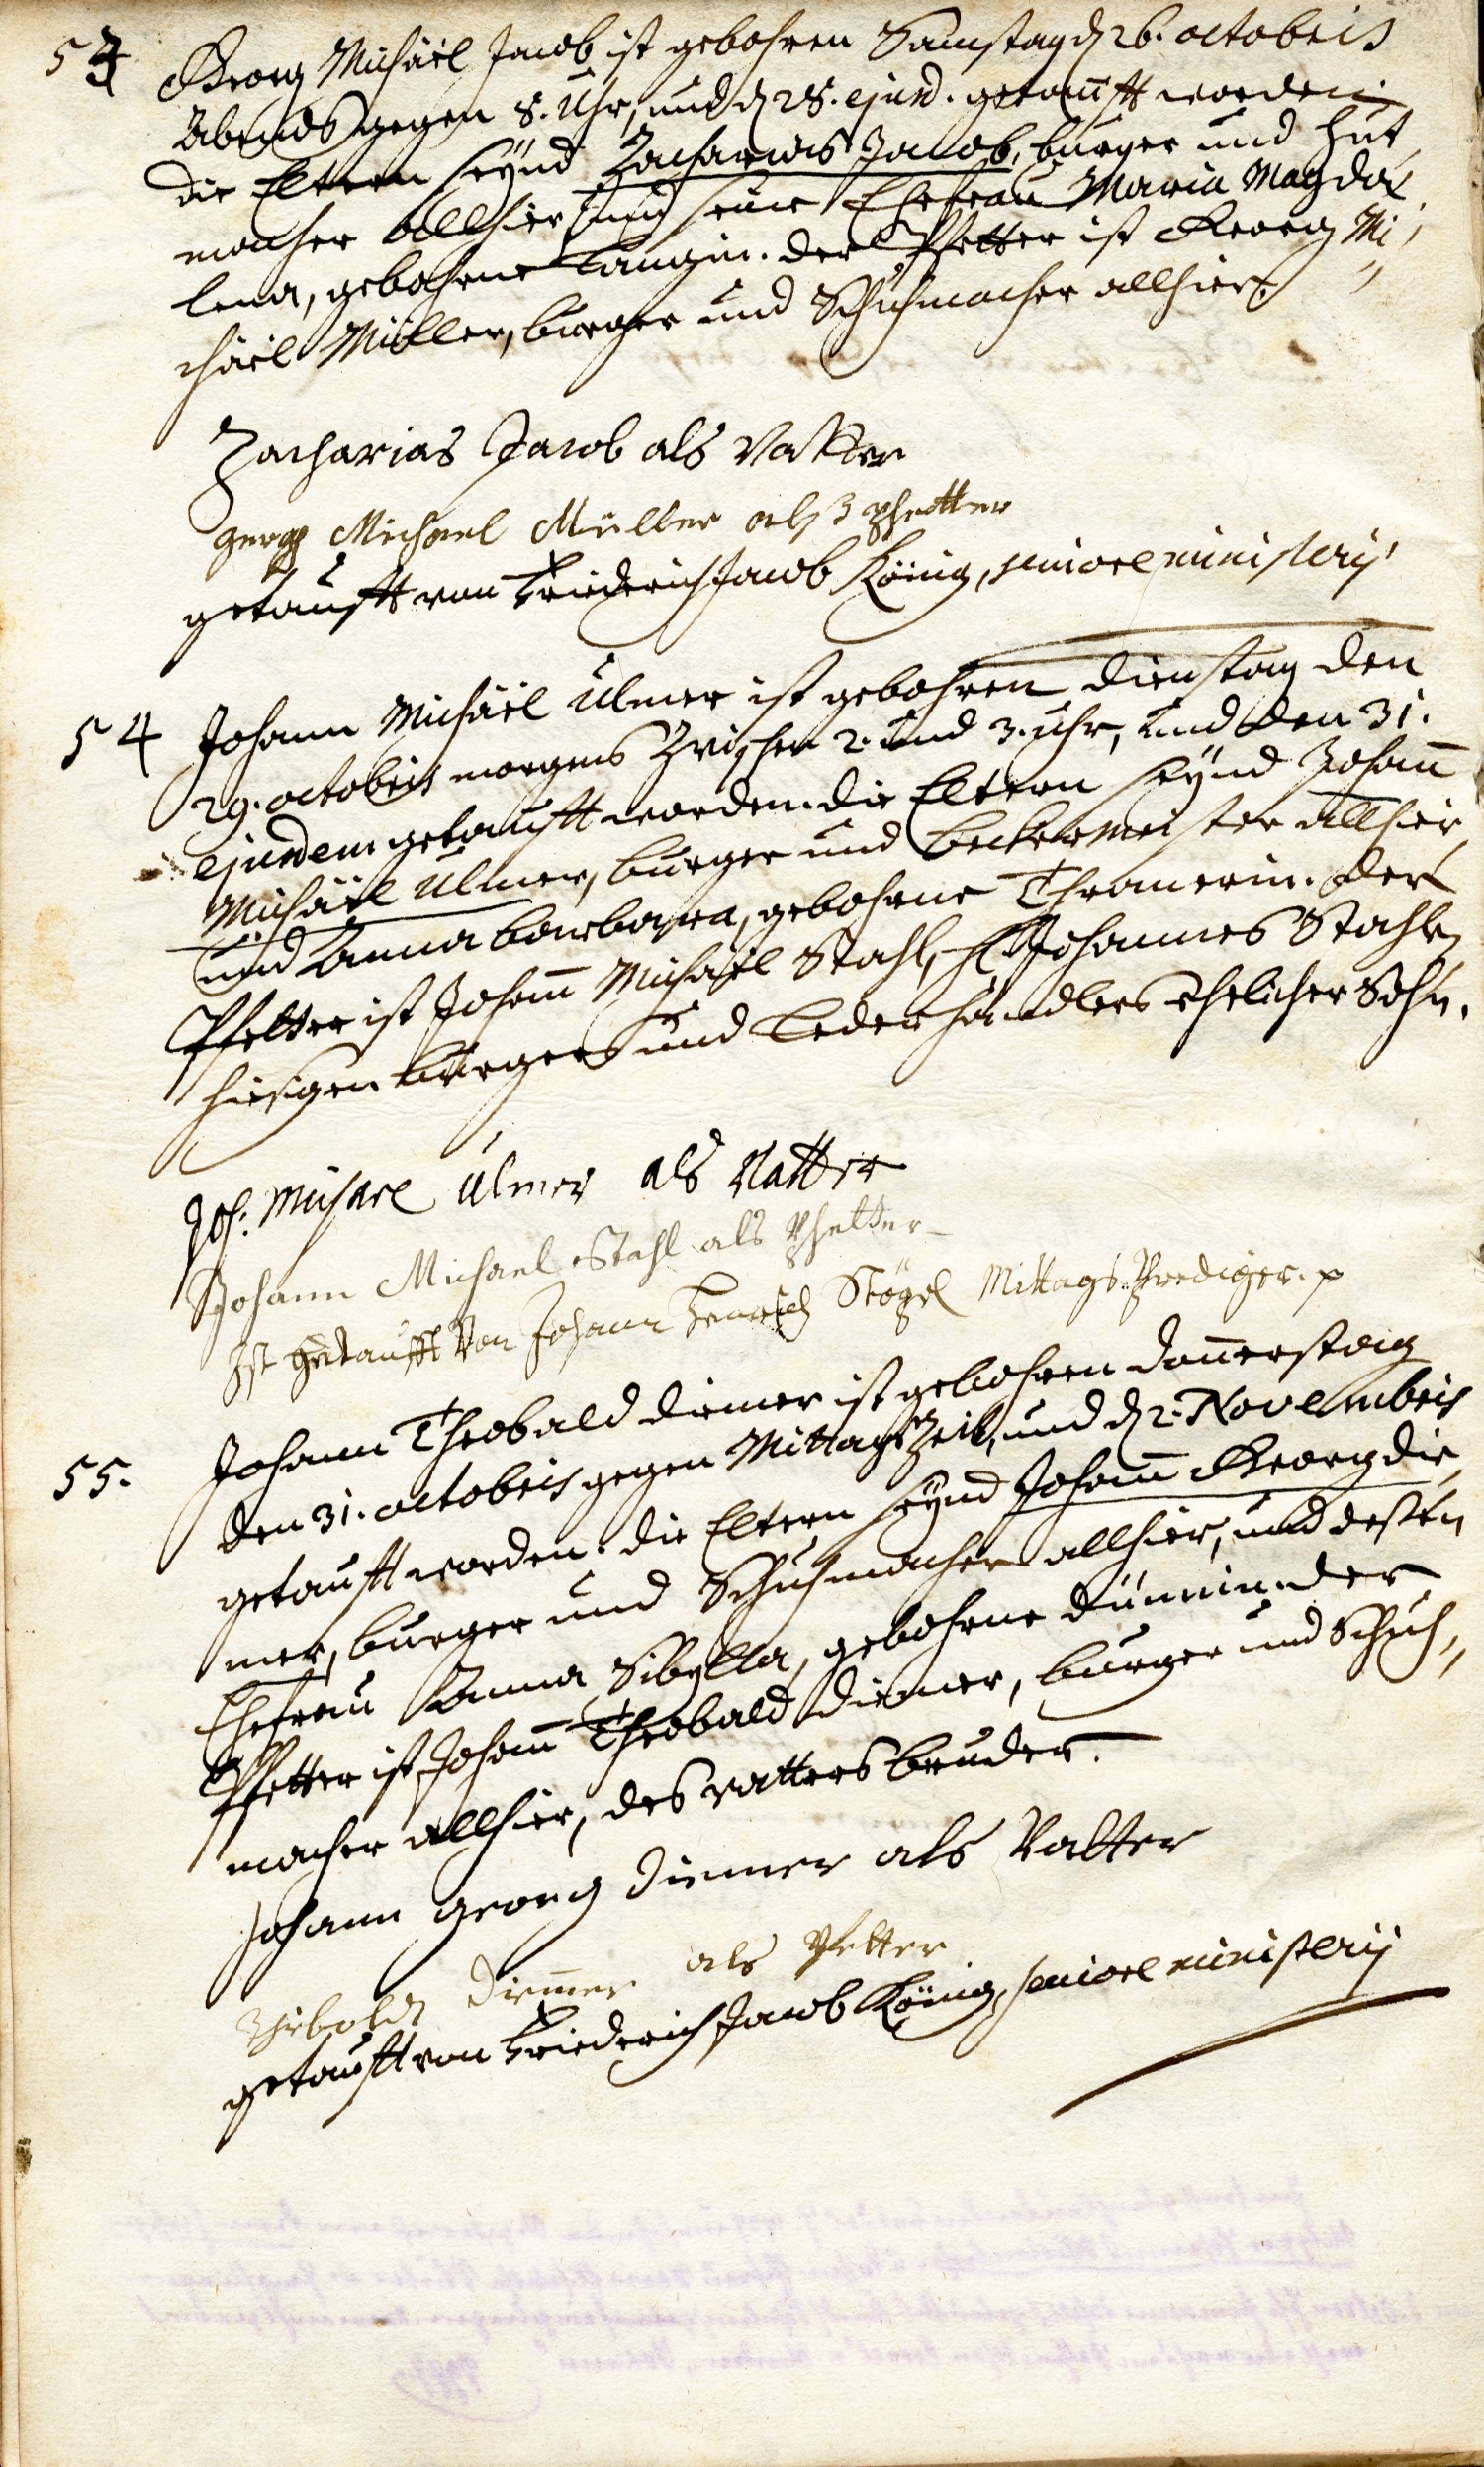 53
Georg Michäel Jacob ist gebohren Samstag d. 26. octobris
Abends gegen 8. Uhr, und d. 28. ejusd. getaufft worden.
die Eltern seynd Zacharias Jacob, burger und hut,,
macher allhier und seine Ehefrau Maria Magda,,
lena, gebohrne Langin. der Pfetter ist Georg Mi,,
chäel Müller, burger und Schuhmacher allhier.
Zacharias Jacob als Vatter
Michael Müller alß phetter
getaufft von Friderich Jacob König, seniore ministerij
54 Johann Michäel Ulmer ist gebohren Dienstag den
29. octobris morgens Zwischen 2. und 3. Uhr, und den 31.
ejusdem getaufft worden. die Eltern seynd Johañ
Michäel Ulmer, burger und beckermeister allhier,
und Anna barbara, gebohrne Thramerin. der
Pfetter ist Johañ Michäel Stahl, Johannes Stahls,
hiesigen burgers und Lederhändlers ehelicher Sohn.
Joh. Michael Ulmer als Vatter
Johann Michael Stahl als Phetter
Ist getaufft von Johann Henrich Stögel Mittags-Prediger.
55. Johann Theobald Diemer ist gebohren Doñerstag
den 31. octobris gegen Mittags Zeit, und d. 2. Novembris
getaufft worden. die Eltern seynd Johañ Georg Die,,
mer, burger und Schuhmacher allhier, und dessen
Ehefrau Anna Sibylla, gebohrne Dünnin. der
Pfetter ist Johañ Theobald Diemer, burger und Schuh,,
macher allhier, des vatters bruder.
Johann Georg Diemer als Vatter
Diemer als Pfetter
getaufft von Friderich Jacob König, seniore ministerij